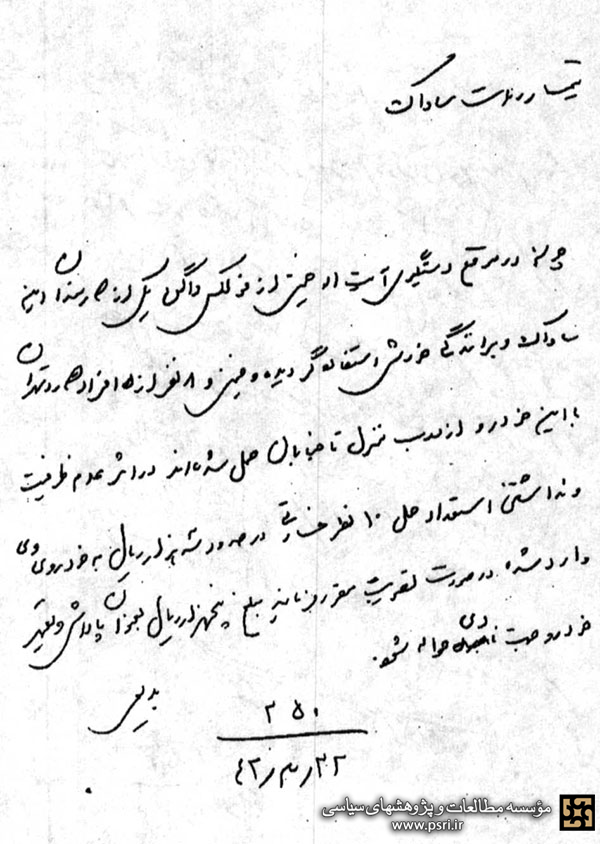 تیمسار ریاست ساواک
چون در موقع دستگیری آیت اله خمینی از فولکس واگن یکی از کارمندان این
ساواک و برانندگی خودش استفاده گردیده و خمینی و ۸ نفر از افراد تهران
با این خودرو از درب منزل تا خیابان حمل شده‌اند در اثر عدم ظرفیت
و نداشتن استعداد حمل ۱۰ نفر خساراتی در حدود سه هزار ریال به خودروی وی
وارد شده در صورت تصویب مقرر فرمایند مبلغ پنجهزار ریال بعنوان پاداش و تعمیر
خودرو جهت وی حواله شود.
بدیعی
۲۵۰
۴۲٫۳٫۲۲
مؤسسه مطالعات و پژوهشهای سیاسی
www.psri.ir